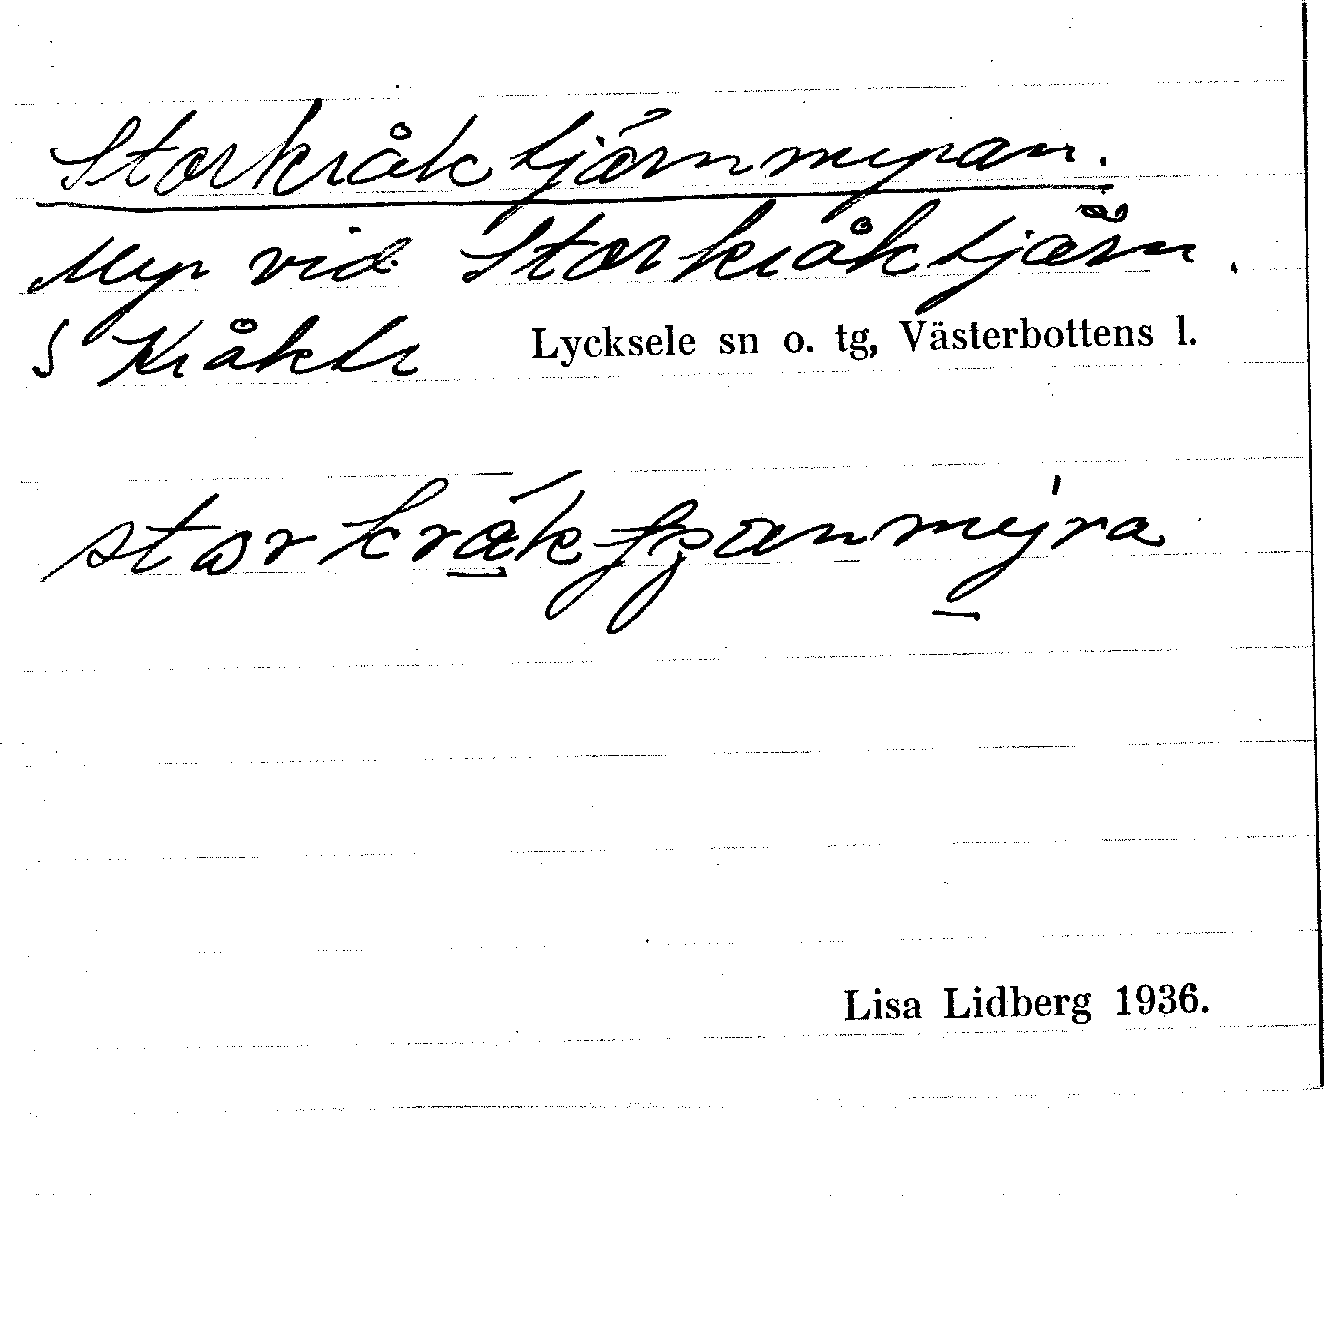 Storkråktjärnmyran.
Myr vid Storkråktjärn.
S Kråktr Lycksele sn o. tg, Västerbottens l.
Lisa Lidberg 1936.